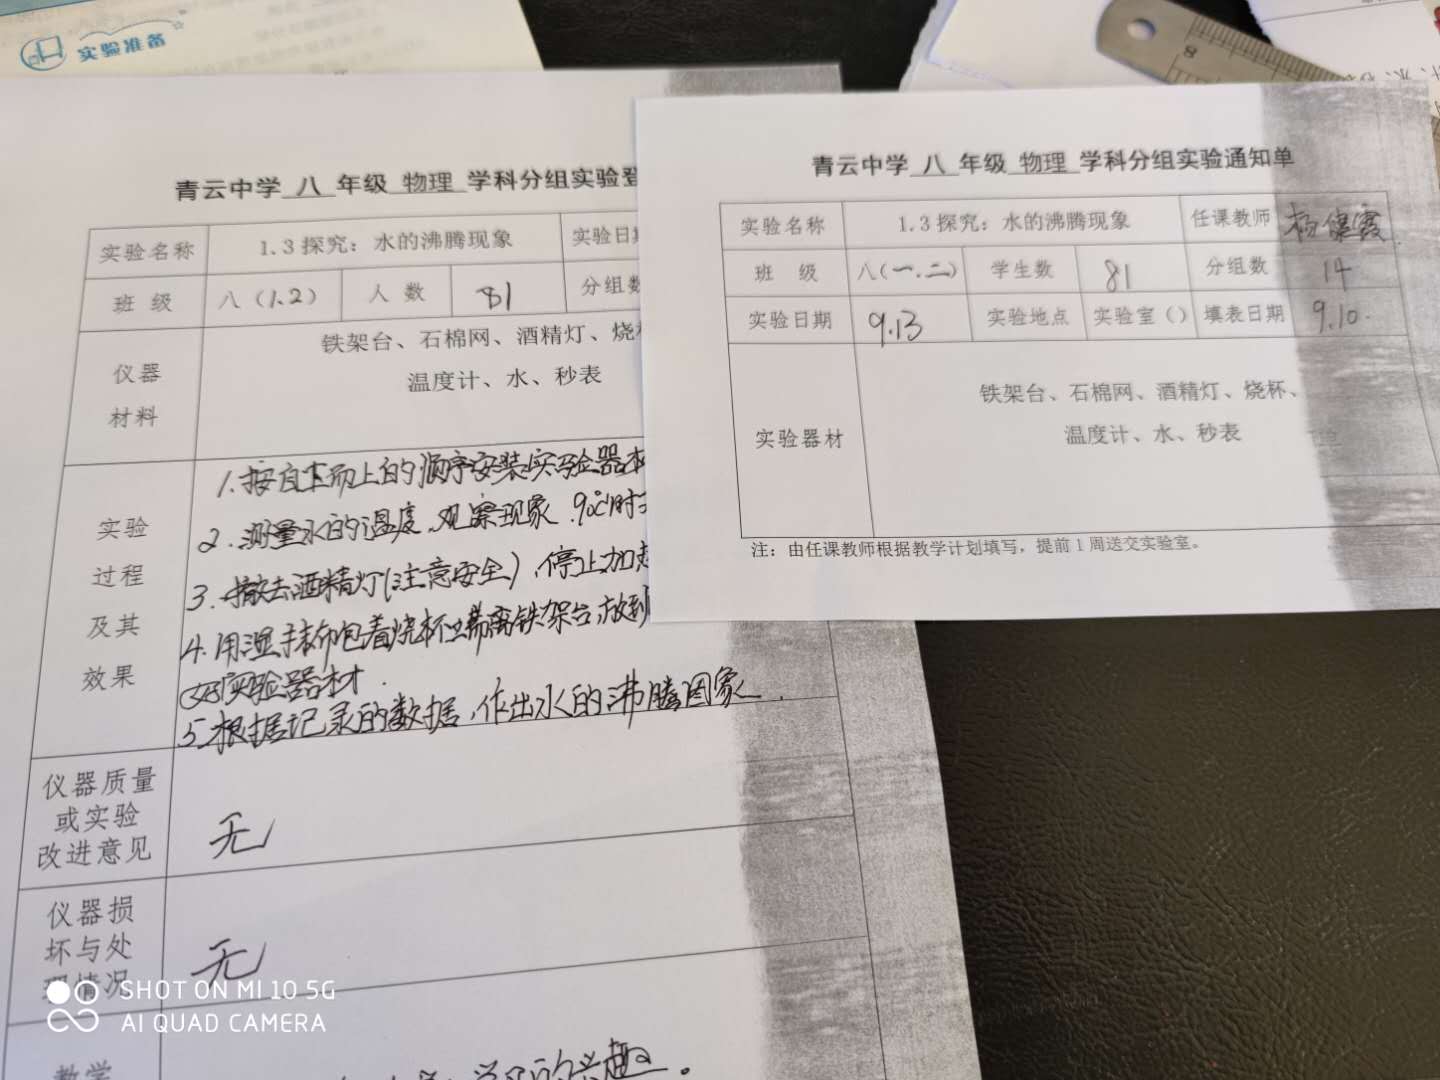 实验准备
青云中学 八 年级 物理 学科分组实验登
实验名称 1.3 探究：水的沸腾现象 实验日期
班 级 八（1.2） 人 数 81 分组数
仪器
材料
铁架台、石棉网、酒精灯、烧杯
温度计、水、秒表
实验
过程
及其
效果
1.按自下而上的顺序安装实验器材
2.测量水的温度,观察现象.90℃时
3.撤去酒精灯(注意安全),停止加热
4.用湿抹布包着烧杯,撤离铁架台,放到
实验器材.
5.根据记录的数据,作出水的沸腾图象.
仪器质量
或实验
改进意见
无
仪器损
坏与处
理情况
无
教学
的兴趣。
青云中学 八 年级 物理 学科分组实验通知单
实验名称 1.3 探究：水的沸腾现象 任课教师 杨健霞
班 级 八(一.二) 学生数 81 分组数 14
实验日期 9.13 实验地点 实验室（） 填表日期 9.10.
实验器材
铁架台、石棉网、酒精灯、烧杯、
温度计、水、秒表
注：由任课教师根据教学计划填写，提前 1 周送交实验室。
8
SHOT ON MI 10 5G
AI QUAD CAMERA